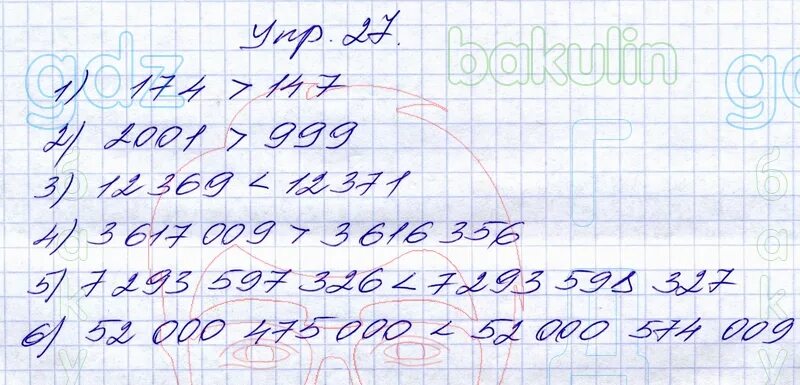 Упр. 27.
gdz bakulin
1) 174 > 147
2) 2001 > 999
3) 12 369 < 12 371
4) 3 617 009 > 3 616 356
5) 7 293 597 326 < 7 293 598 327
6) 52 000 475 000 < 52 000 574 009